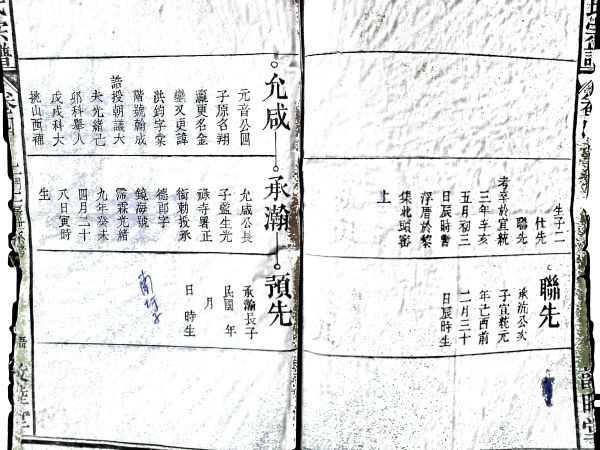 生子二
仕先
聯先
考卒於宣統
三年辛亥
五月初三
日辰時暫
浮厝於黎
集北頭寨
上
聯先
承沆公次
子宣統元
年己酉前
二月三十
日辰時生
允咸
元音公四
子原名翔
瀛更名金
鑾又更諱
洪鈞字棠
階號翰成
誥授朝議大
夫光緒己
卯科舉人
戊戌科大
挑山西補
承瀚
允咸公長
子監生光
祿寺署正
銜勅授承
德郎字
鏡海號
霈霖光緒
九年癸未
四月二十
八日寅時
生
預先
承瀚長子
民國 年
月
日 時生